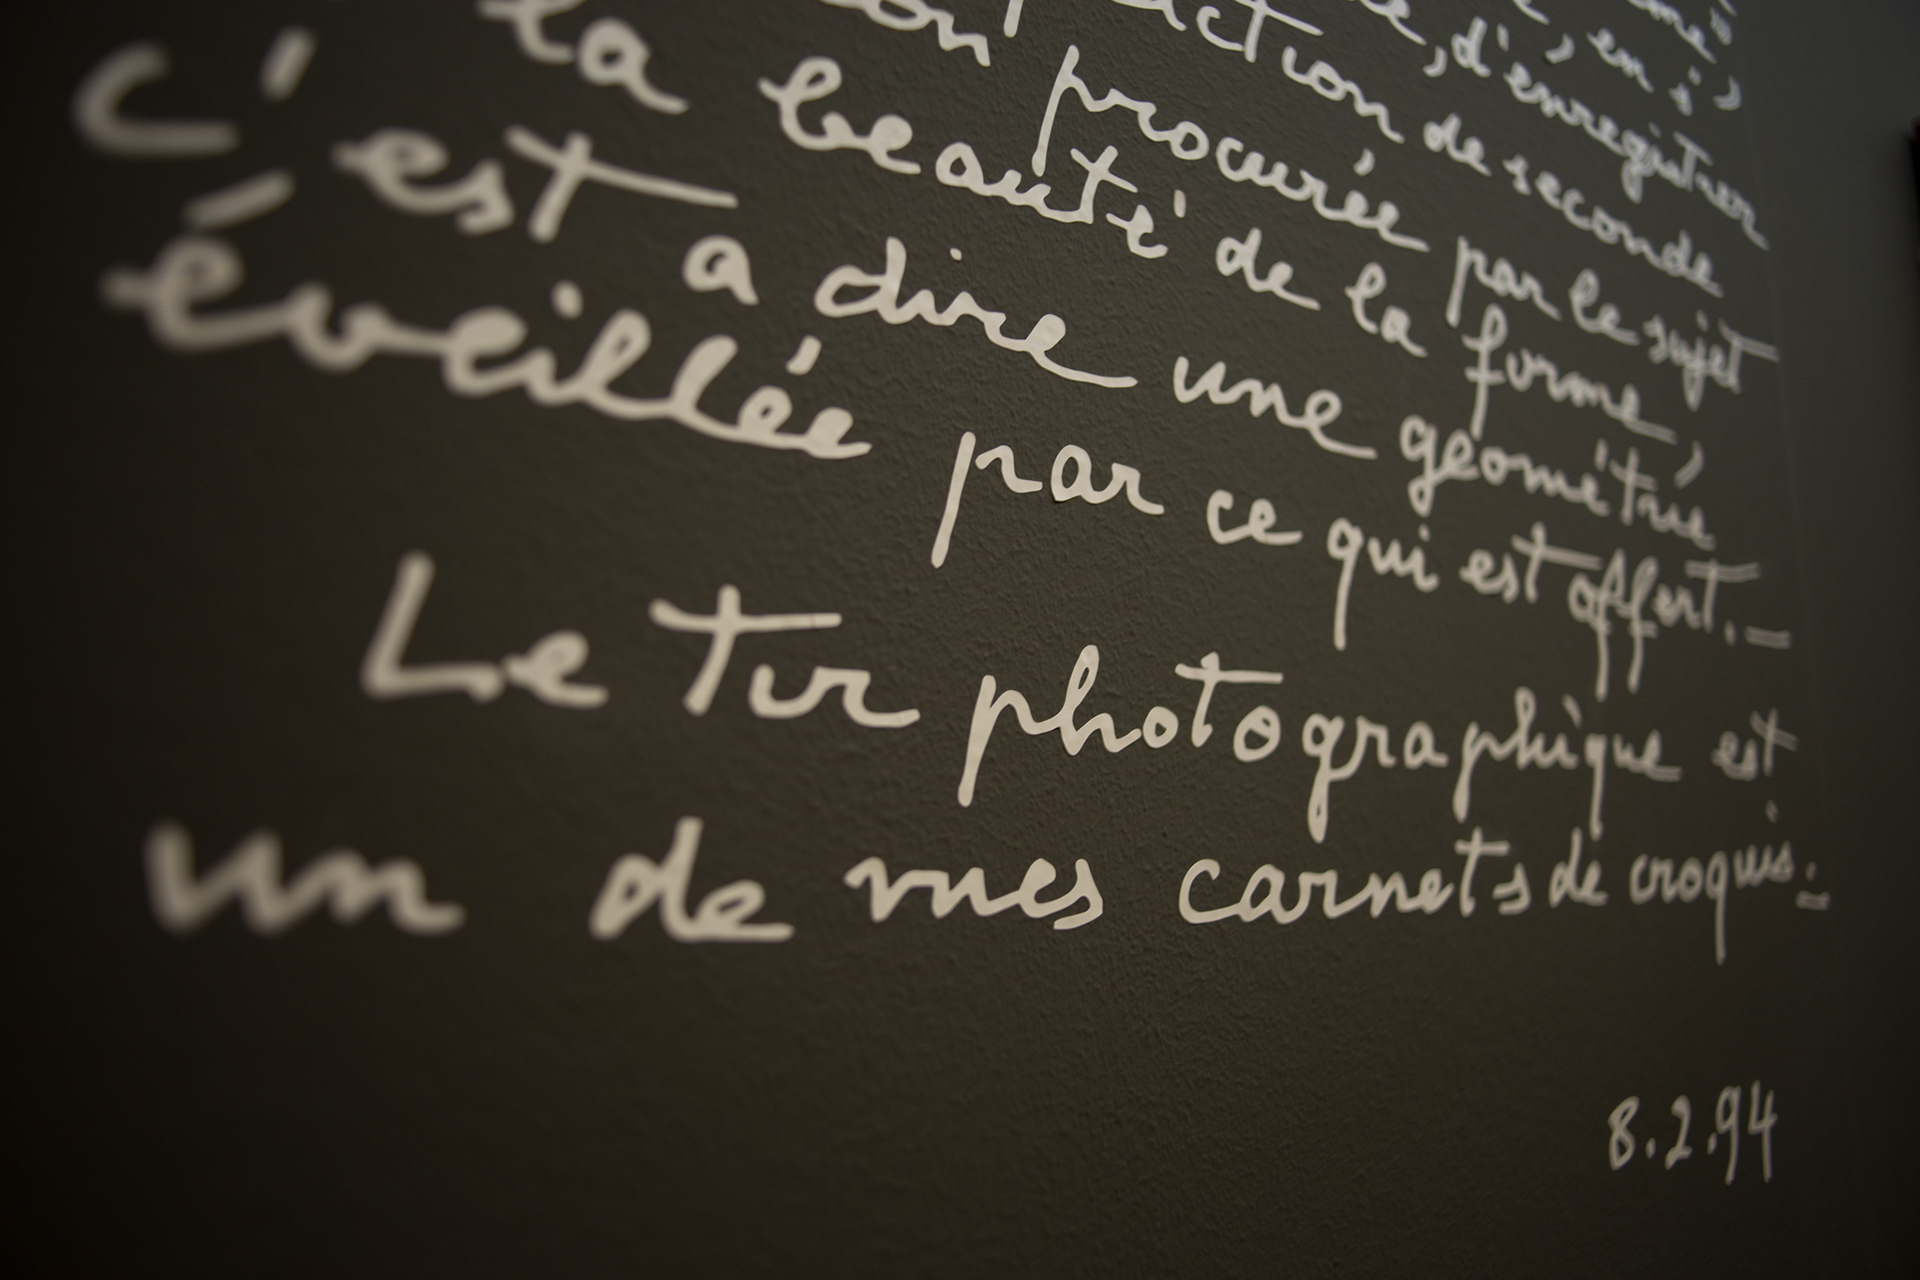 en s'
d'enregistrer
de seconde
procurée par le sujet
la beauté de la forme,
c'est a dire une géométrie
éveillée par ce qui est offert._
Le tir photographique est
un de mes carnets de croquis._
8.2.94